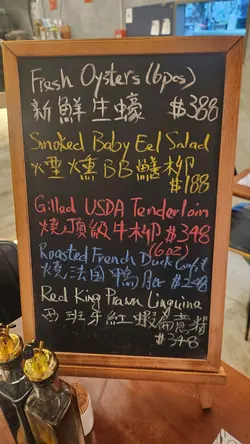 Fresh Oysters (6pcs)
新鮮生蠔 $388
Smoked Baby Eel Salad
煙燻BB鱔柳
$188
Gilled USDA Tenderloin
燒頂級牛柳 $348
(6oz)
Roasted French Duck Confit
燒法國鴨髀 $248
Red King Prawn Linguine
西班牙紅蝦扁意粉
$348